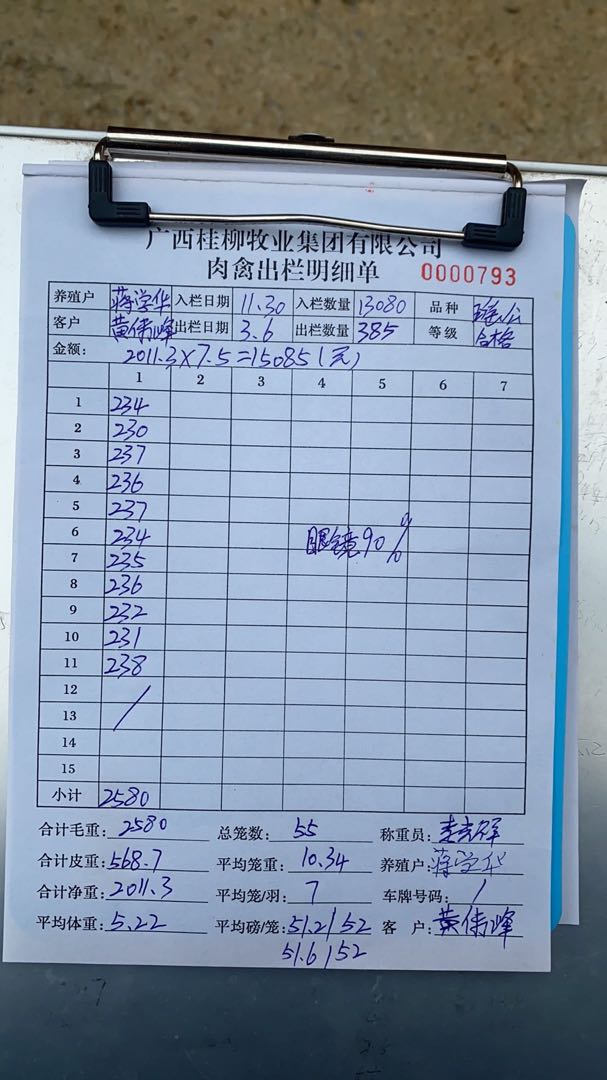 广西桂柳牧业集团有限公司
肉禽出栏明细单 0000793
养殖户 蒋学华 入栏日期 11.30 入栏数量 13080 品种
客户 黄伟峰 出栏日期 3.6 出栏数量 385 等级 合格
金额: 2011.3×7.5=15085(元)
1 2 3 4 5 6 7
1 234
2 230
3 237
4 236
5 237
6 234 眼镜90%
7 235
8 236
9 232
10 231
11 238
12
13 /
14
15
小计 2580
合计毛重: 2580 总笼数: 55 称重员:
合计皮重: 568.7 平均笼重: 10.34 养殖户: 蒋学华
合计净重: 2011.3 平均笼/羽: 7 车牌号码: /
平均体重: 5.22 平均磅/笼: 51.2/52 客 户: 黄伟峰
51.6/52